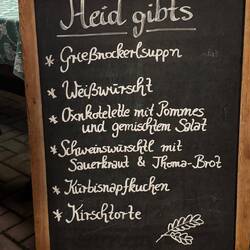 Heid gibts
* Grießnockerlsuppn
* Weißwürscht
* Oxnkotelette mit Pommes
und gemischtem Salat
* Schweinswürschtl mit
Sauerkraut & Thoma-Brot
* Kürbisnapfkuchen
* Kirschtorte